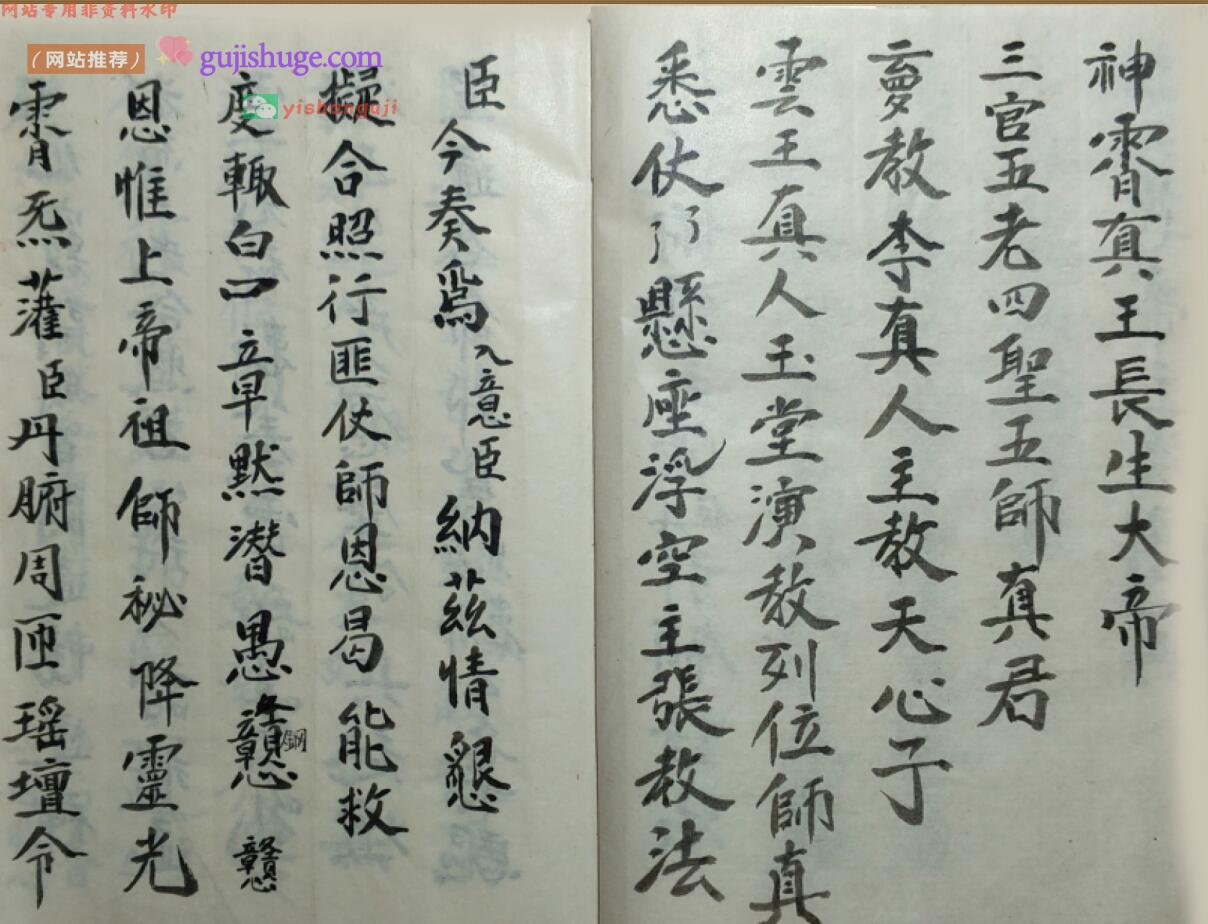 网站专用非资料水印
（网站推荐）
gujishuge.com
yishanguji
神霄真王長生大帝
三官五老四聖五師真君
教李真人主教天心子
雲王真人玉堂演教列位師真
悉仗懸座浮空主張教法
臣今奏爲入意臣納茲情懇
擬合照行匪仗師恩曷能救
度輒白一章默潜愚戇 鋼 戇
恩惟上帝祖師秘降靈光
霄炁灌臣丹腑周匝瑶壇令